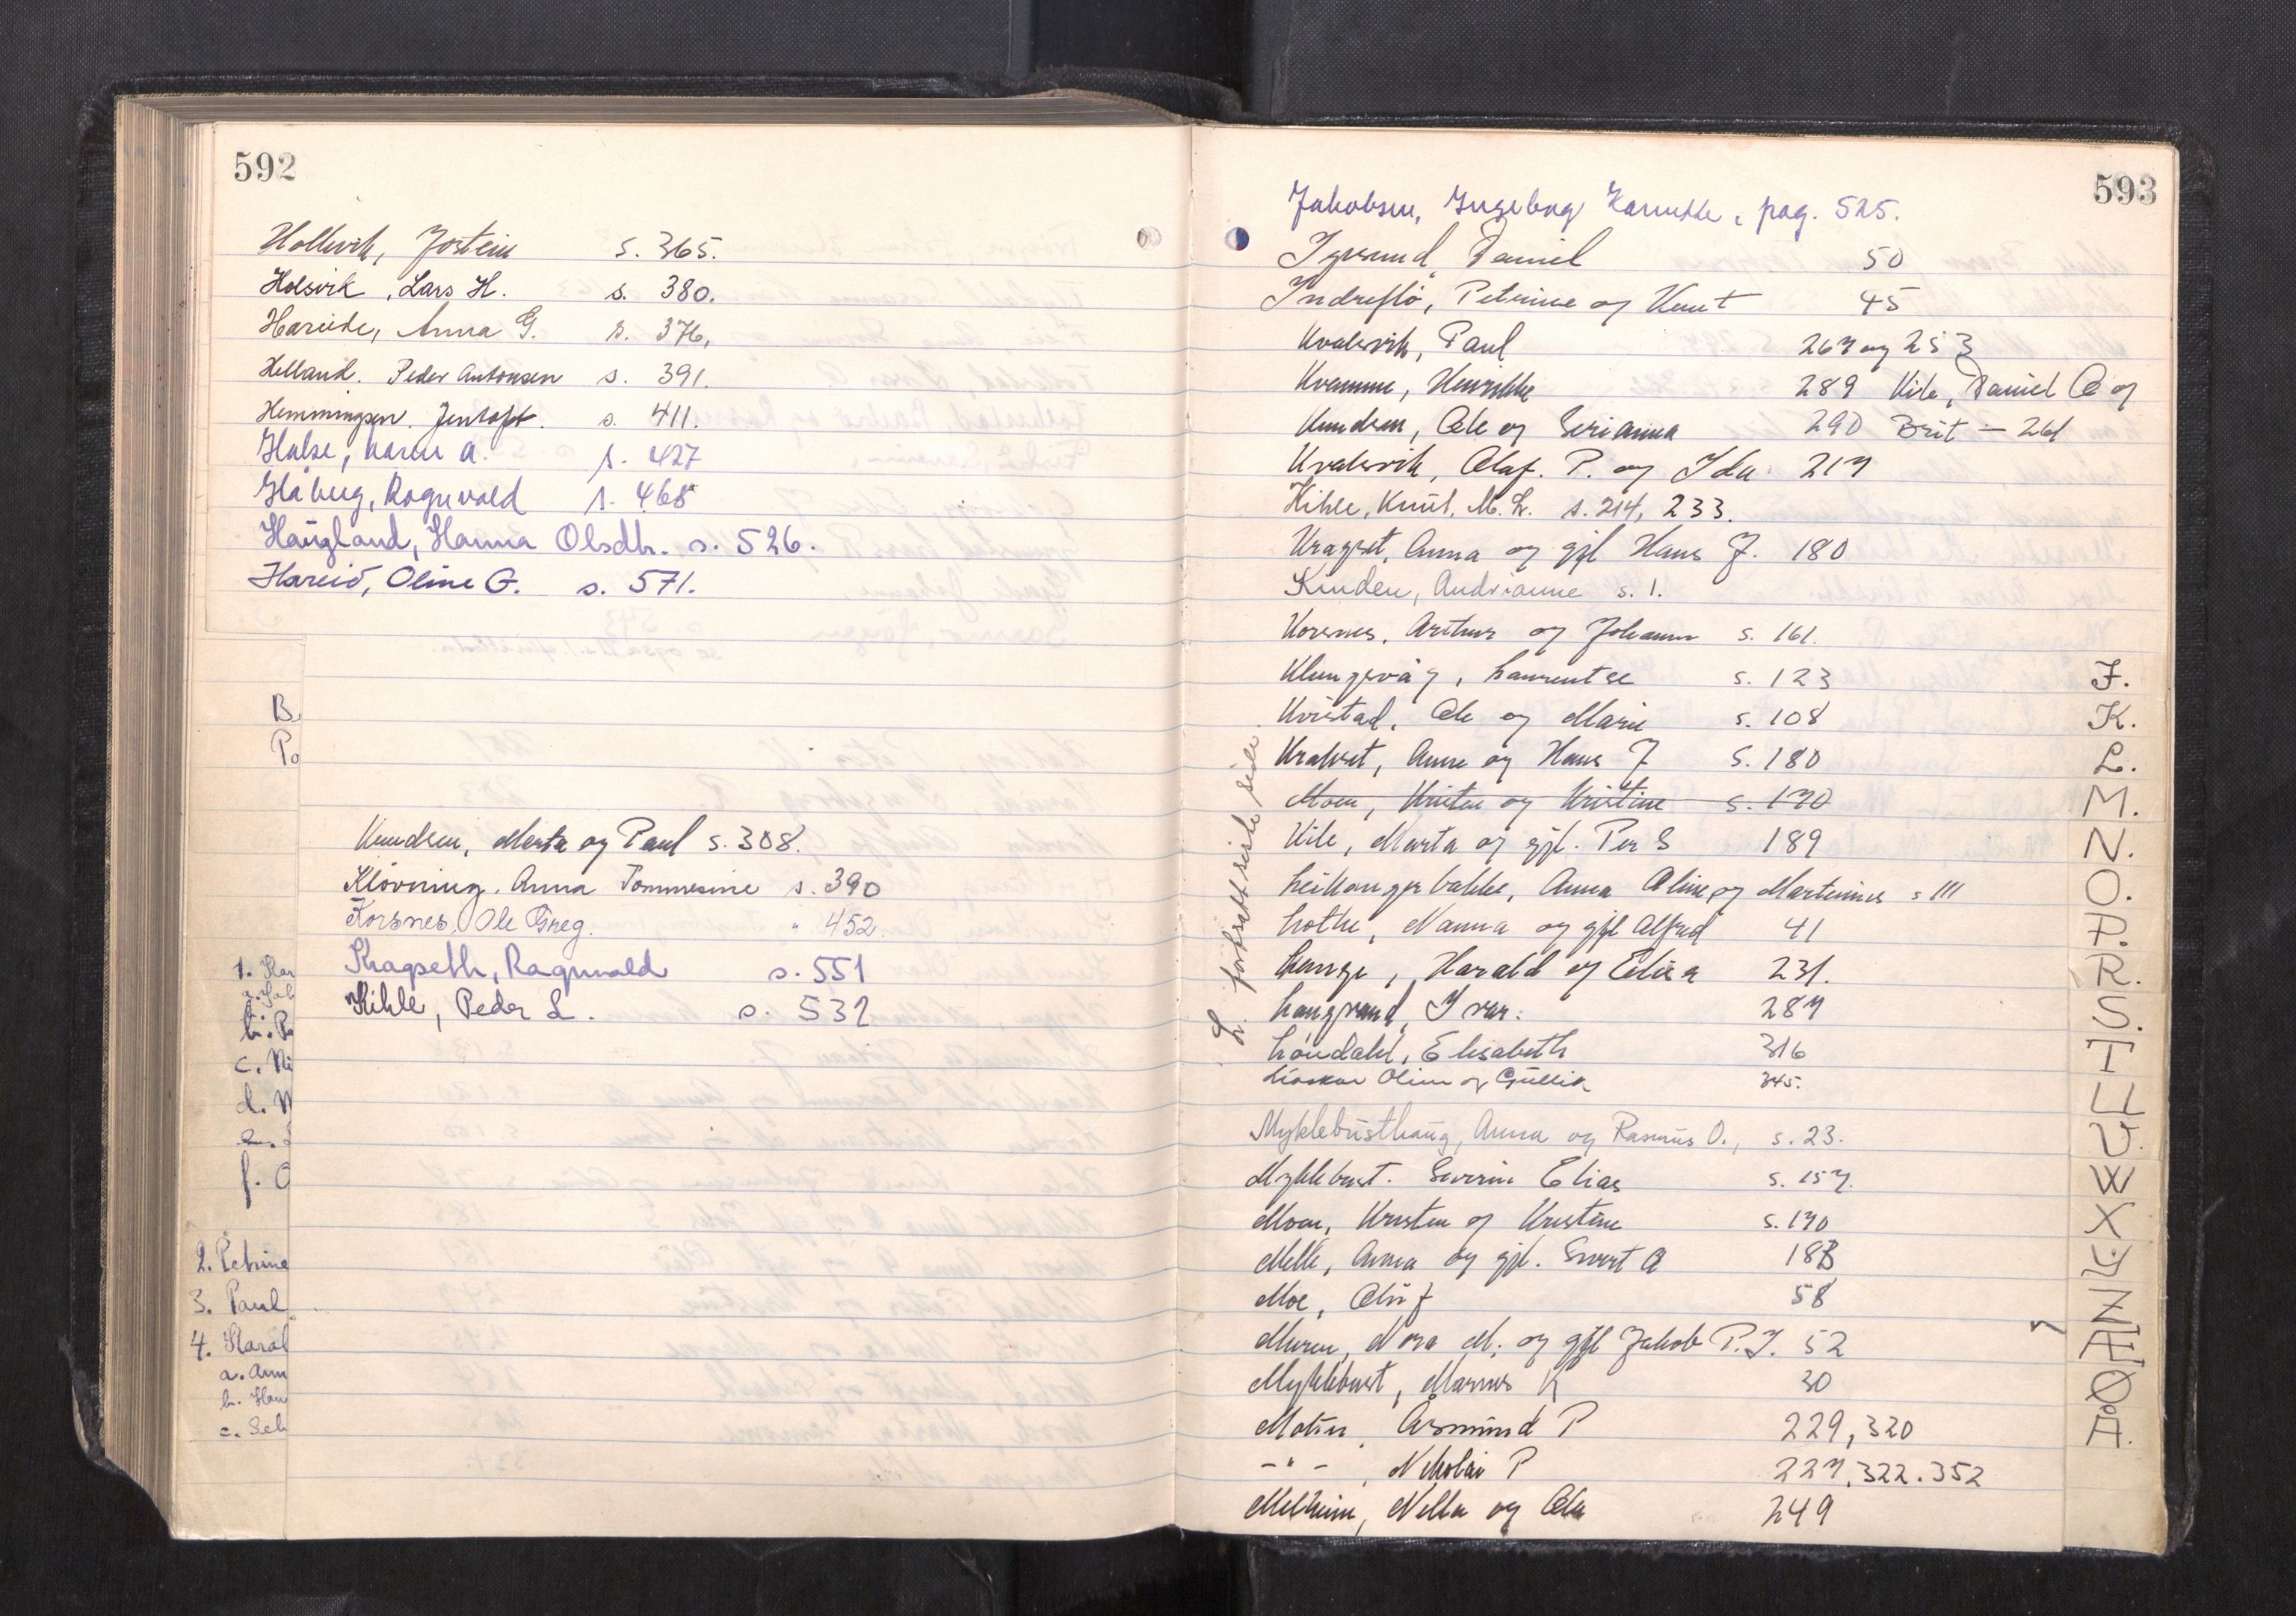 592
Hollevik, Jostein s. 365.
Holsvik, Lars H. s. 380.
Hareide, Anna G. s. 376,
Helland. Peder Antonsen s. 391.
Hemmingsen. Jentoft. s. 411.
Halse, Karen A. s. 427
Håberg, Ragnvald s. 468
Haugland, Hanna Olsdtr. s. 526.
Hareid, Oline G. s. 571.
B.
Po
Knudsen, Marta og Paul s. 308.
Kløvning. Anna Tommesine s. 390
Korsnes, Ole Greg. " 452.
Kragseth, Ragnvald s. 551
Kihle, Peder L. s. 532
1. Kar
b. Pe
c. Ni
d.
f. O
2. Petrine
3. Paul
4. Karol
a. Ann
b. Han
c. Seb
593
Jakobsen, Ingeborg, pag. 525.
Igesund, Daniel 50
Indreflø, Petrine og Knut 45
Kvalsvik, Paul 267 og 253
Kvamme, Henrikke 289 Kile, Daniel O og
Knudsen, Ole og Serianna 290 Brit - 261
Kvalsvik, Olaf. P. og Ida 217
Kihle, Knut. M. L. s. 214, 233.
Kragset, Anna og gjl Hans J. 180
Kinden, Andrianne s. 1.
Korsnes, Arthur og Johanna s. 161.
Klungsvåg, Laurentse s. 123
Kvistad, Ole og Marie s. 108
Kralset, Anne og Hans J s. 180
Moen, Kristen og Kristine s. 170
Kile, Marta og gjl. Per S 189
Leikangerbakke, Anna Oline og Martinus s 111
Lothe, Nanna og gjl Alfred 41
Lange, Harald og Elisa 231.
Langvand, Ivar. 287
Løndahl, Elisabeth 316
Lioskar Oline og Gullik 345.
L. fortsatt siste side
Myklebusthaug, Anna og Rasmus O., s. 23.
Myklebust. Severin Elias s. 157.
Moen, Kristen og Kristine s. 170
Melle, Anna og gjl. Sivert A 183
Moe, Oluf 58
Muren, Nora M. og gjl Jakob P. I. 52
Myklebust, Marius K 30
Åsmund P 229, 320
-"- , Nikolai P 227, 322. 352
Melheim, Nella og Ola 249
J.
K.
L.
M.
N.
O.
P.
R.
S.
T
U
V.
W
X
Y.
Z
Æ
Ø
Å.